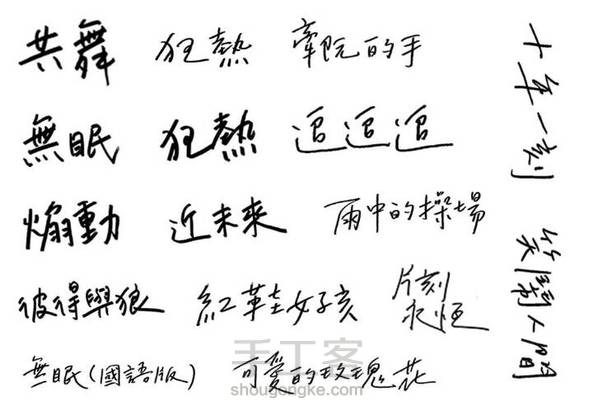 共舞 狂熱 牽阮的手
無眠 狂熱 追追追
煽動 近未來 雨中的操場
彼得與狼 紅鞋女孩 片刻
永恆
無眠(國語版) 可愛的玫瑰花
十年一刻 笑鬧人間
手工客
shougongke.com